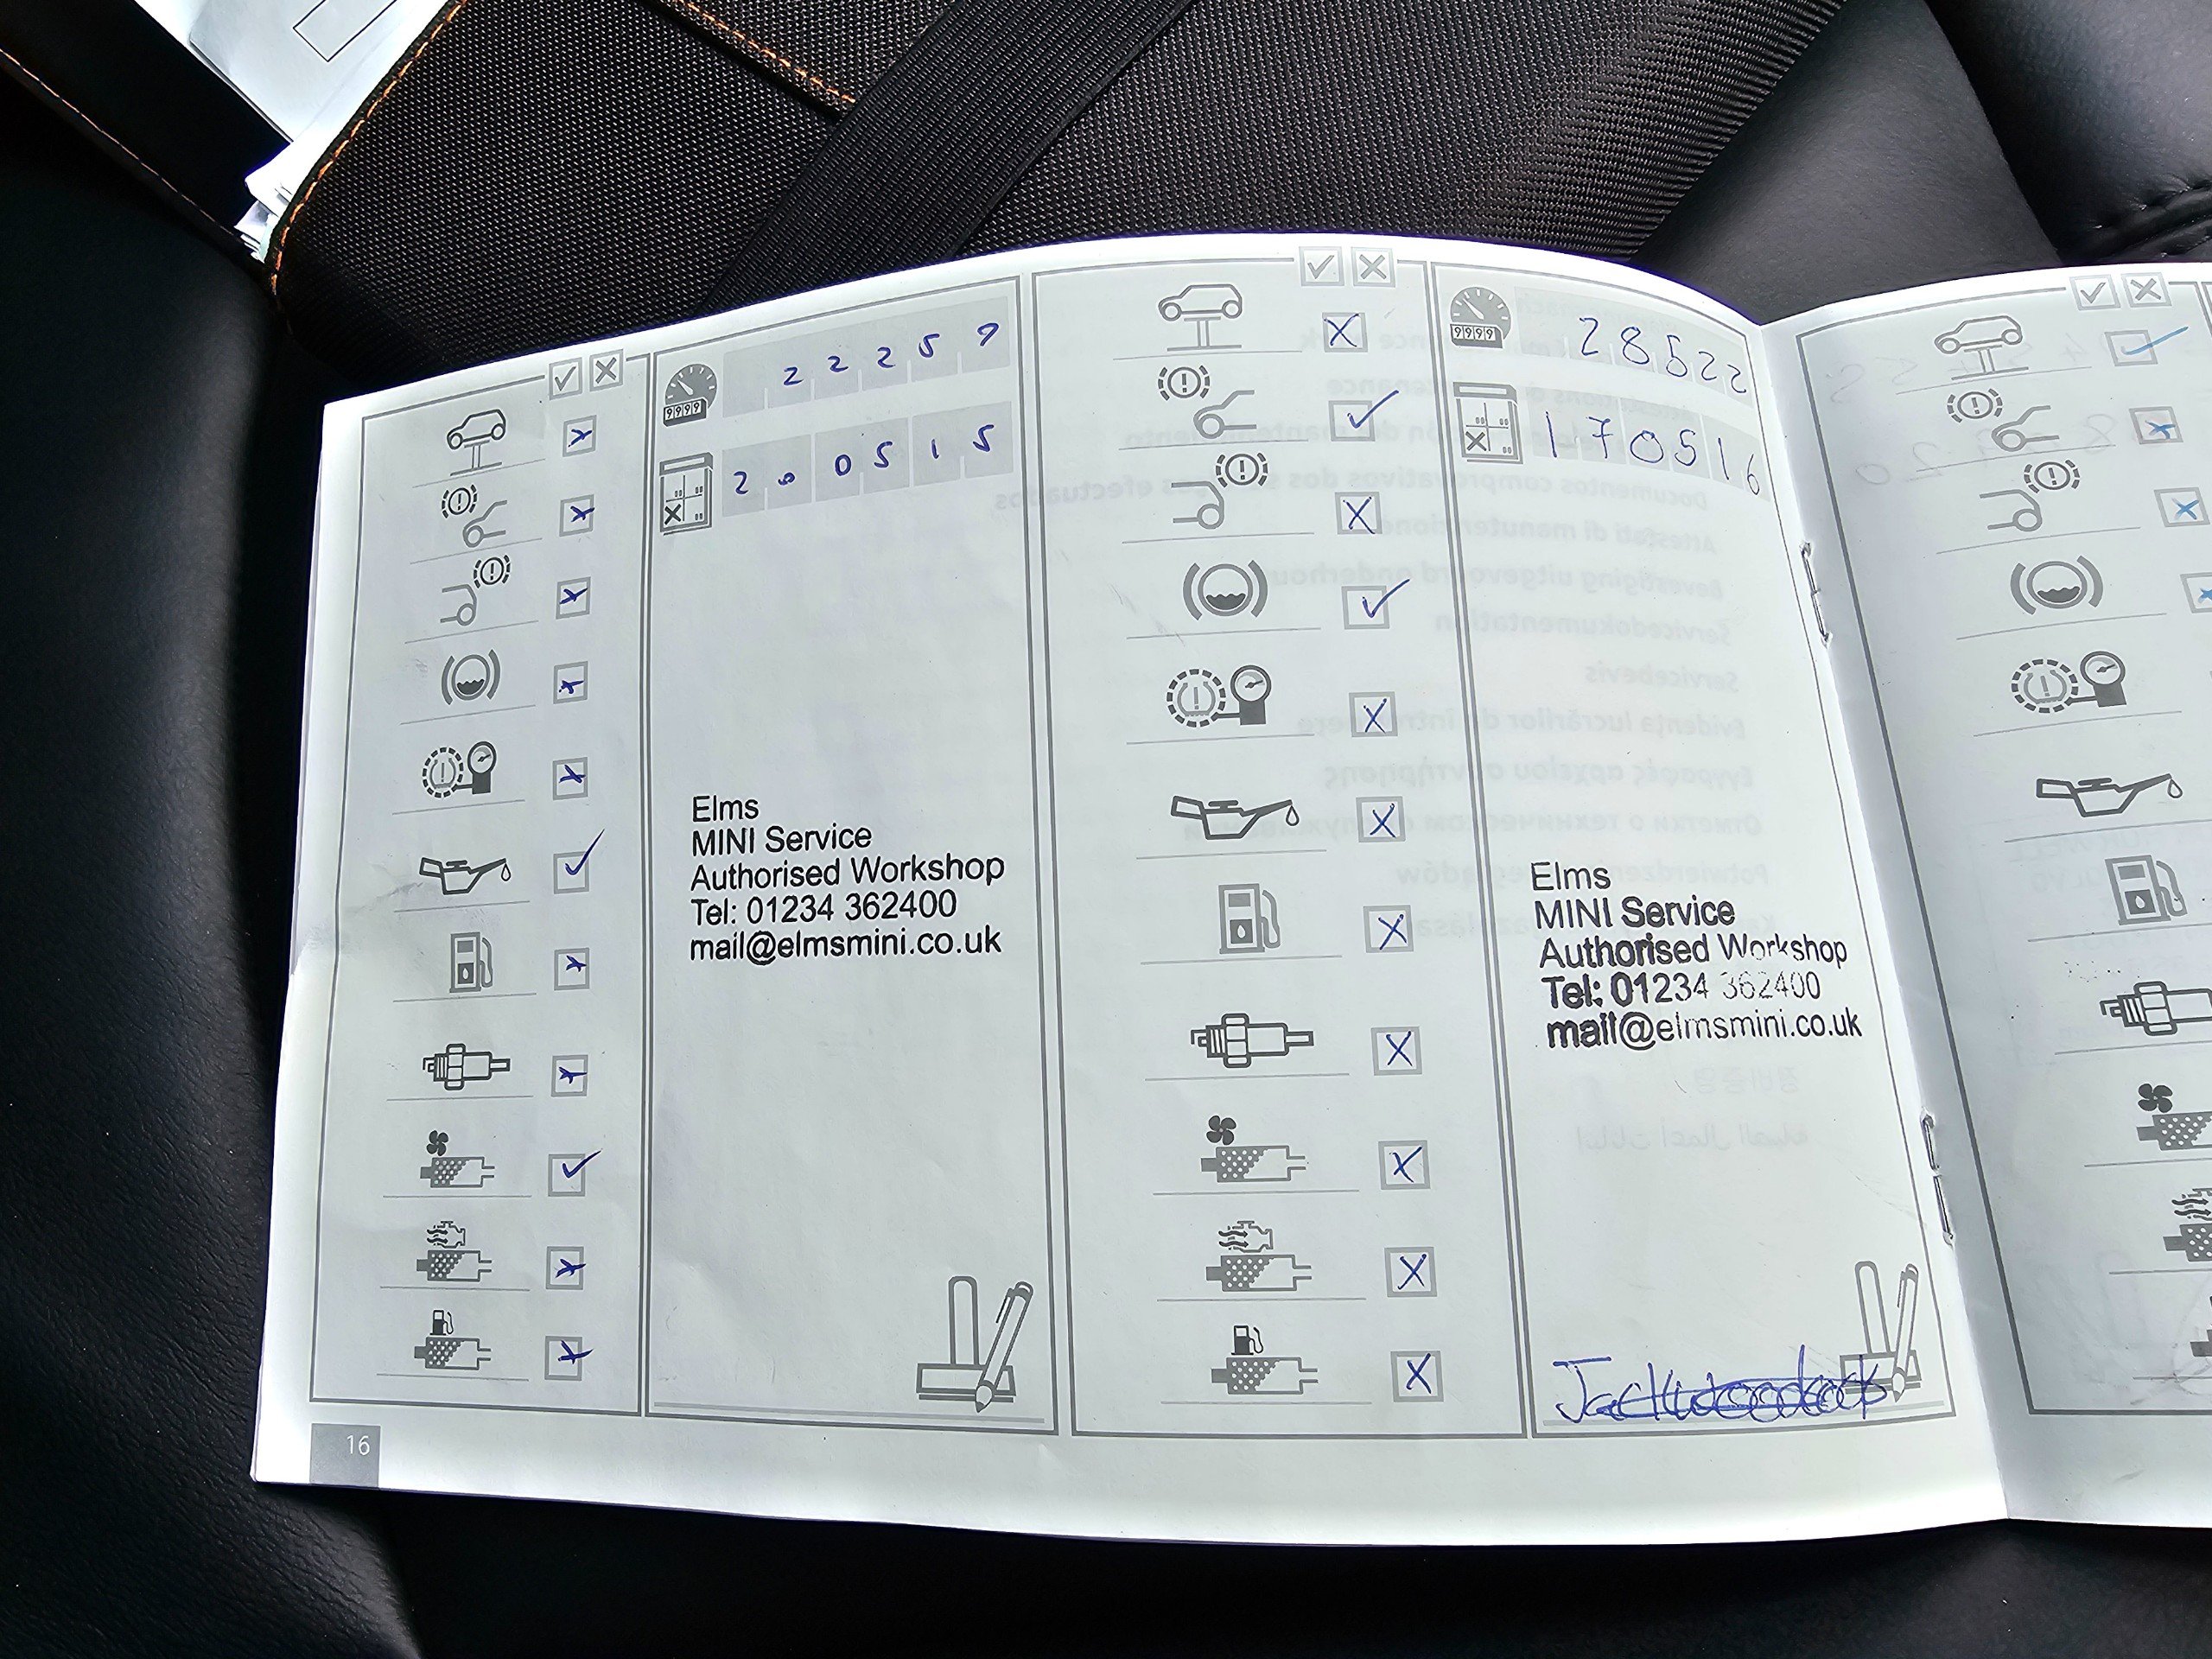 2 2 2 5 9
2 0 0 5 1 5
Elms
MINI Service
Authorised Workshop
Tel: 01234 362400
mail@elmsmini.co.uk
16
28522
170516
Elms
MINI Service
Authorised Workshop
Tel: 01234 362400
mail@elmsmini.co.uk